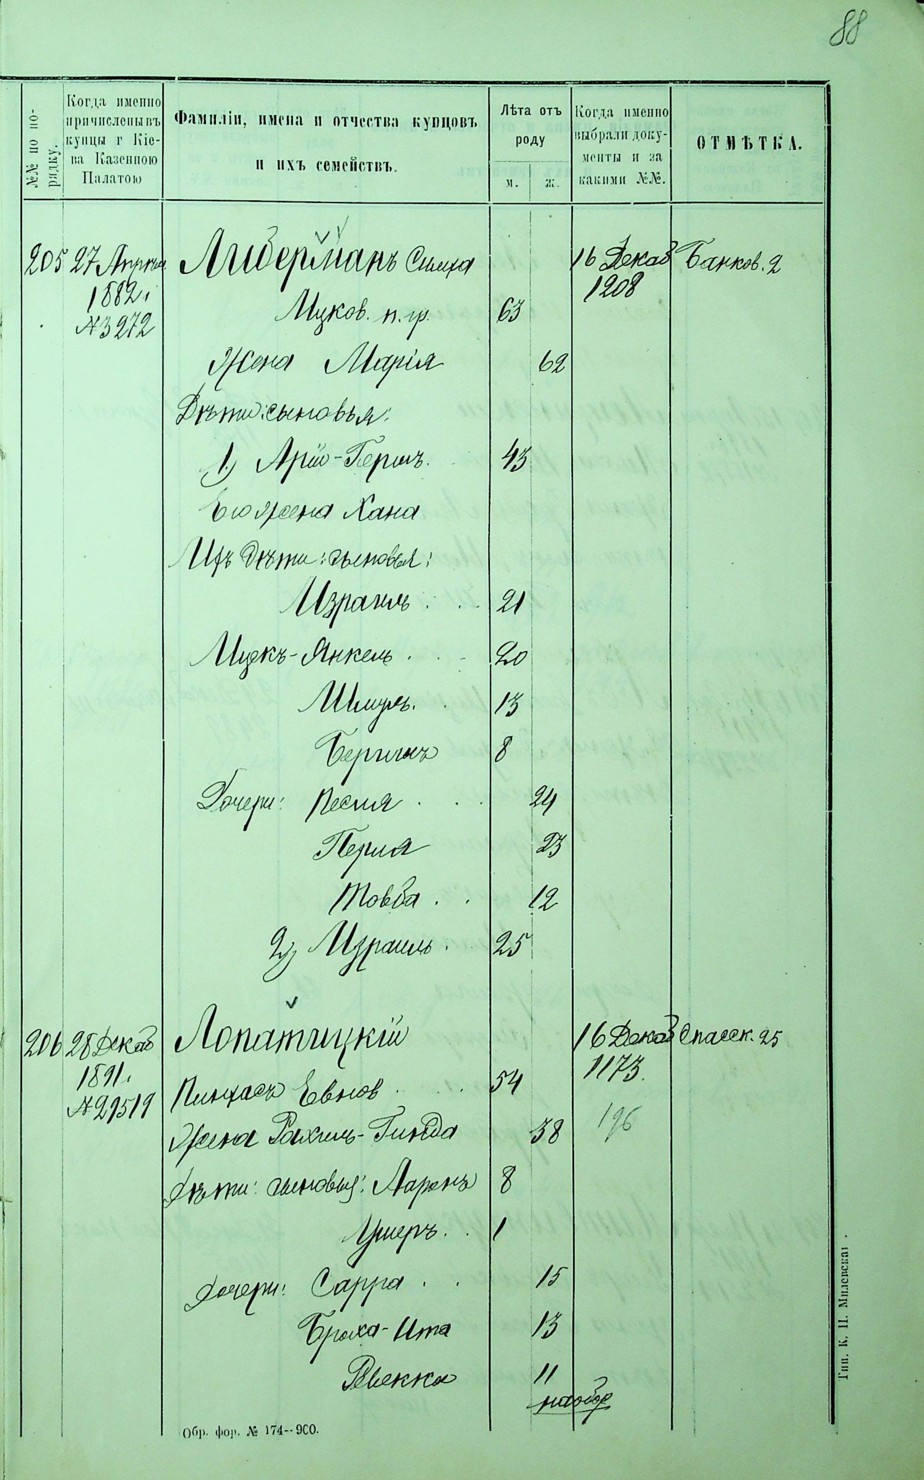 88
№№ по по-
рядку.
Когда именно
причислены въ
купцы г Кіе-
ва Казенною
Палатою
Фамиліи, имена и отчества купцовъ
и ихъ семействъ.
Лѣта отъ
роду
м. ж.
Когда именно
выбрали доку-
менты и за
какими №№.
ОТМѢТКА.
205 27 Апрѣля Либерманъ Симха 16 Декаб Банков. 2
1882. 1208
№3272 Ицков. п. гр. 63
Жена Марія 62
Дѣти: сыновья:
1) Арій-Гершъ. 43
Его жена Хана
Ихъ дѣти: сыновья:
Израиль . . . 21
Ицекъ-Янкель . . . 20
Шмуль . . 13
Бериша 8
Дочери: Песля . . . 24
Перля 23
Товба . . 12
2) Израиль . 25
206 28 Декаб Лопатицкій 16 Декаб Спасск. 25
1891. 1173.
№29519 Пинхасъ Евнов . . . 54
196
Жена Рахиль-Гинда 38
Дѣти: сыновья: Ааронъ 8
Ушеръ . . 1
Дочери: Сарра . . 15
Бруха-Ита 13
Ревекка 11
на обор
Обр. фор. № 174--900.
Тип. К. Н. Милевскаг .